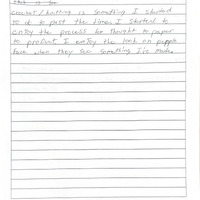 crochet / knitting is something I started
to do to past the time. I started to
enjoy the process for thought to paper
to product. I enjoy the look on people
face when they see something I've made.